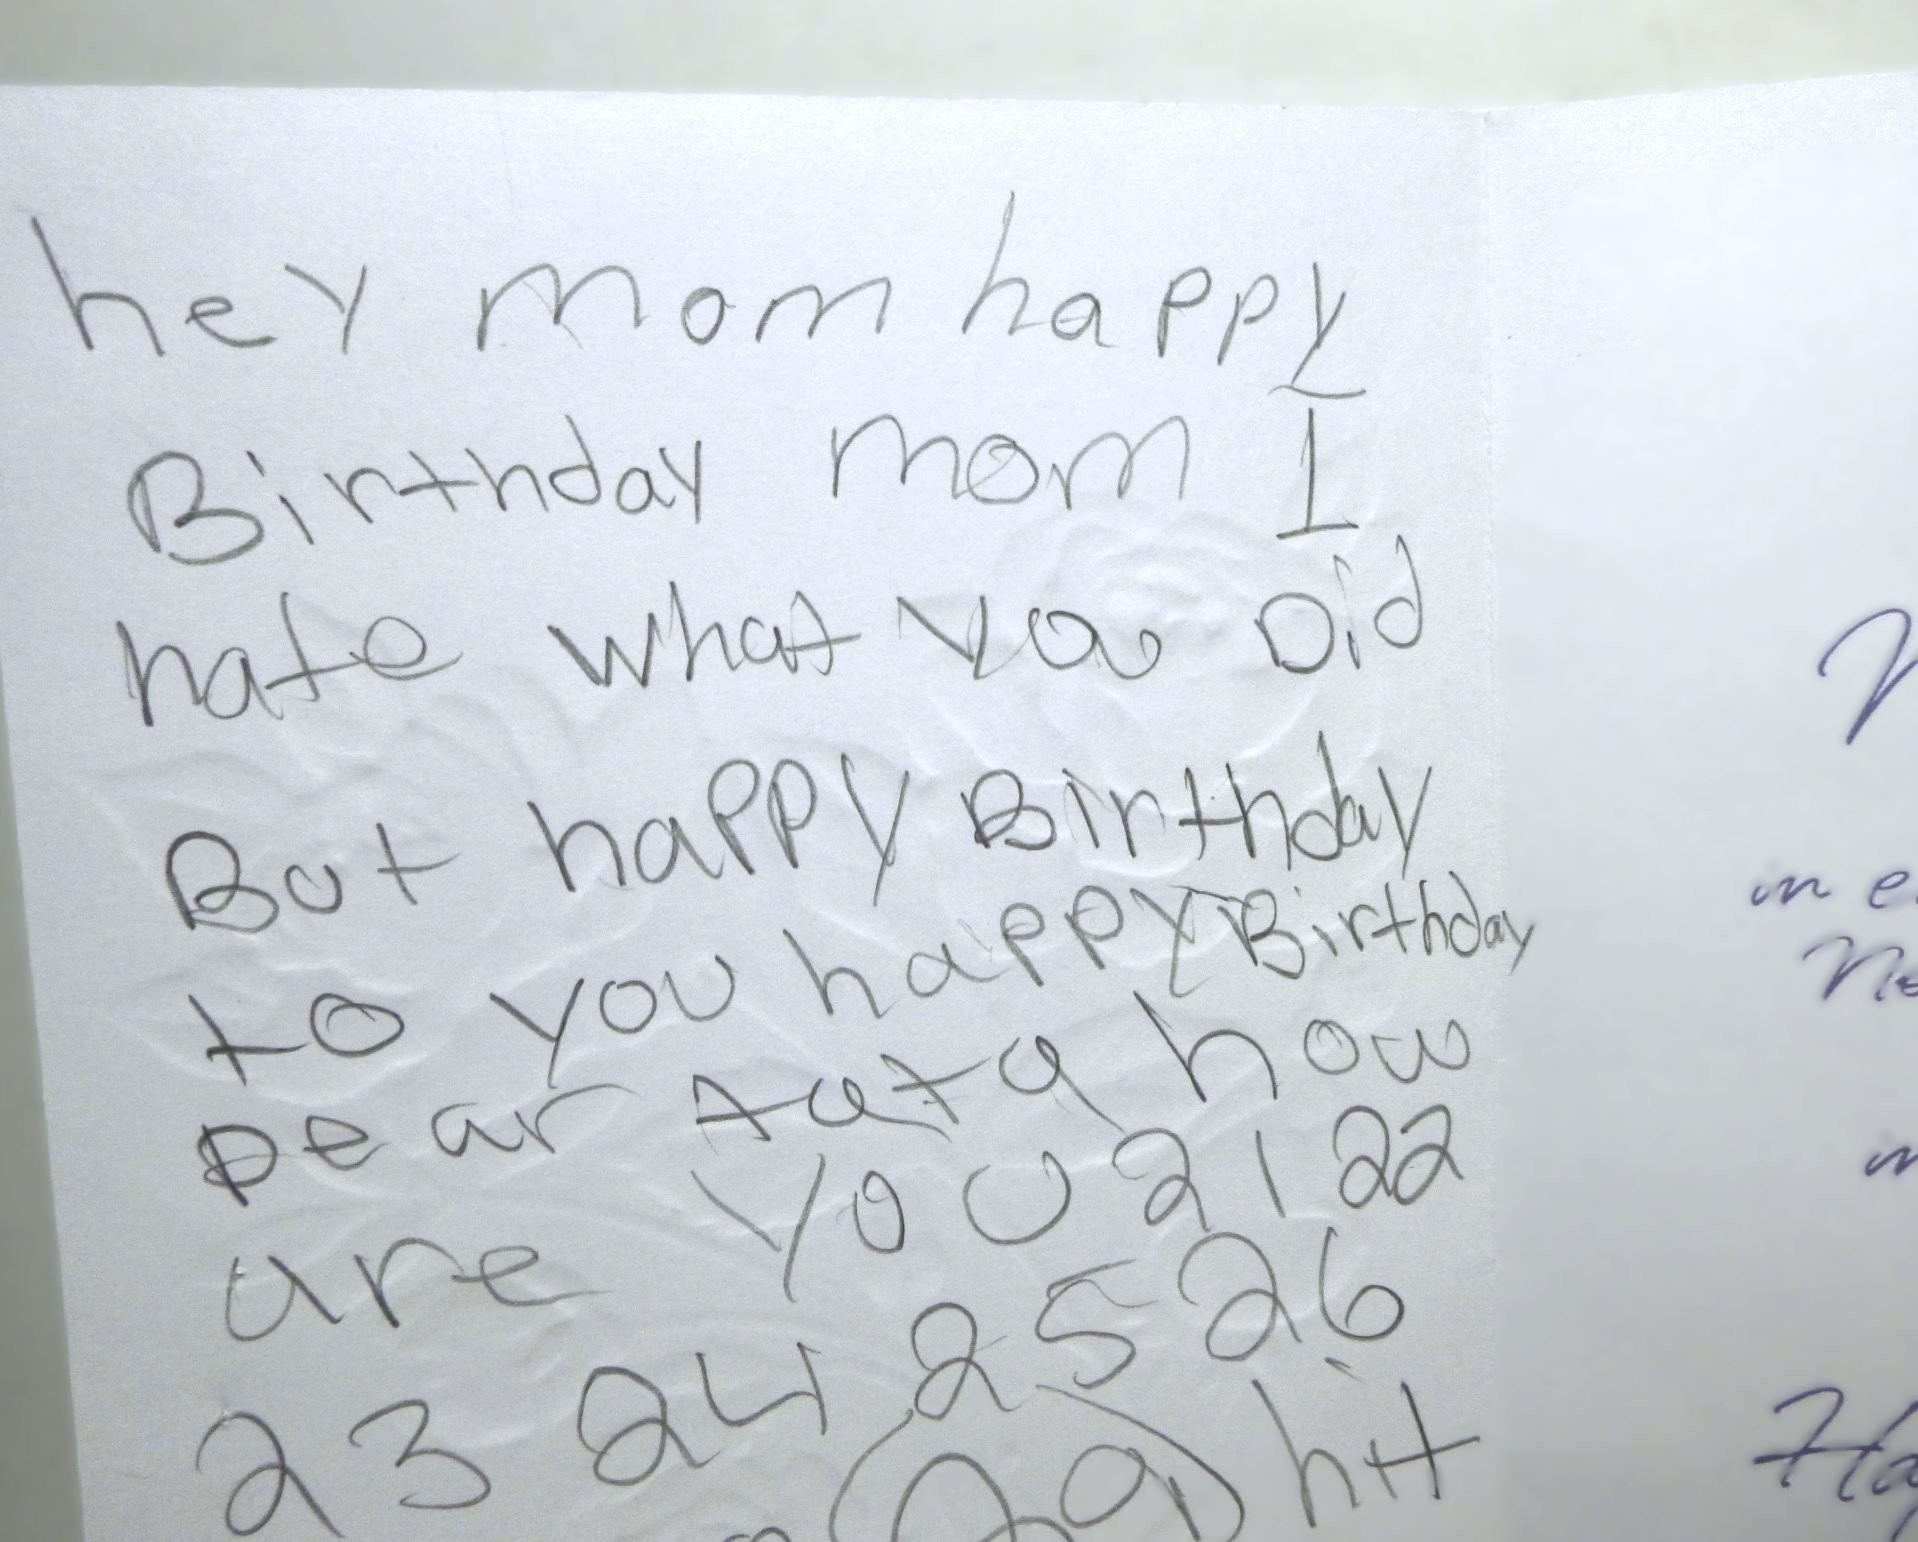 hey mom happy
Birthday mom I
hate what you Did
But happy Birthday
to you happy Birthday
Dear tata how
are you 21 22
23 24 25 26
29 hit
in
in